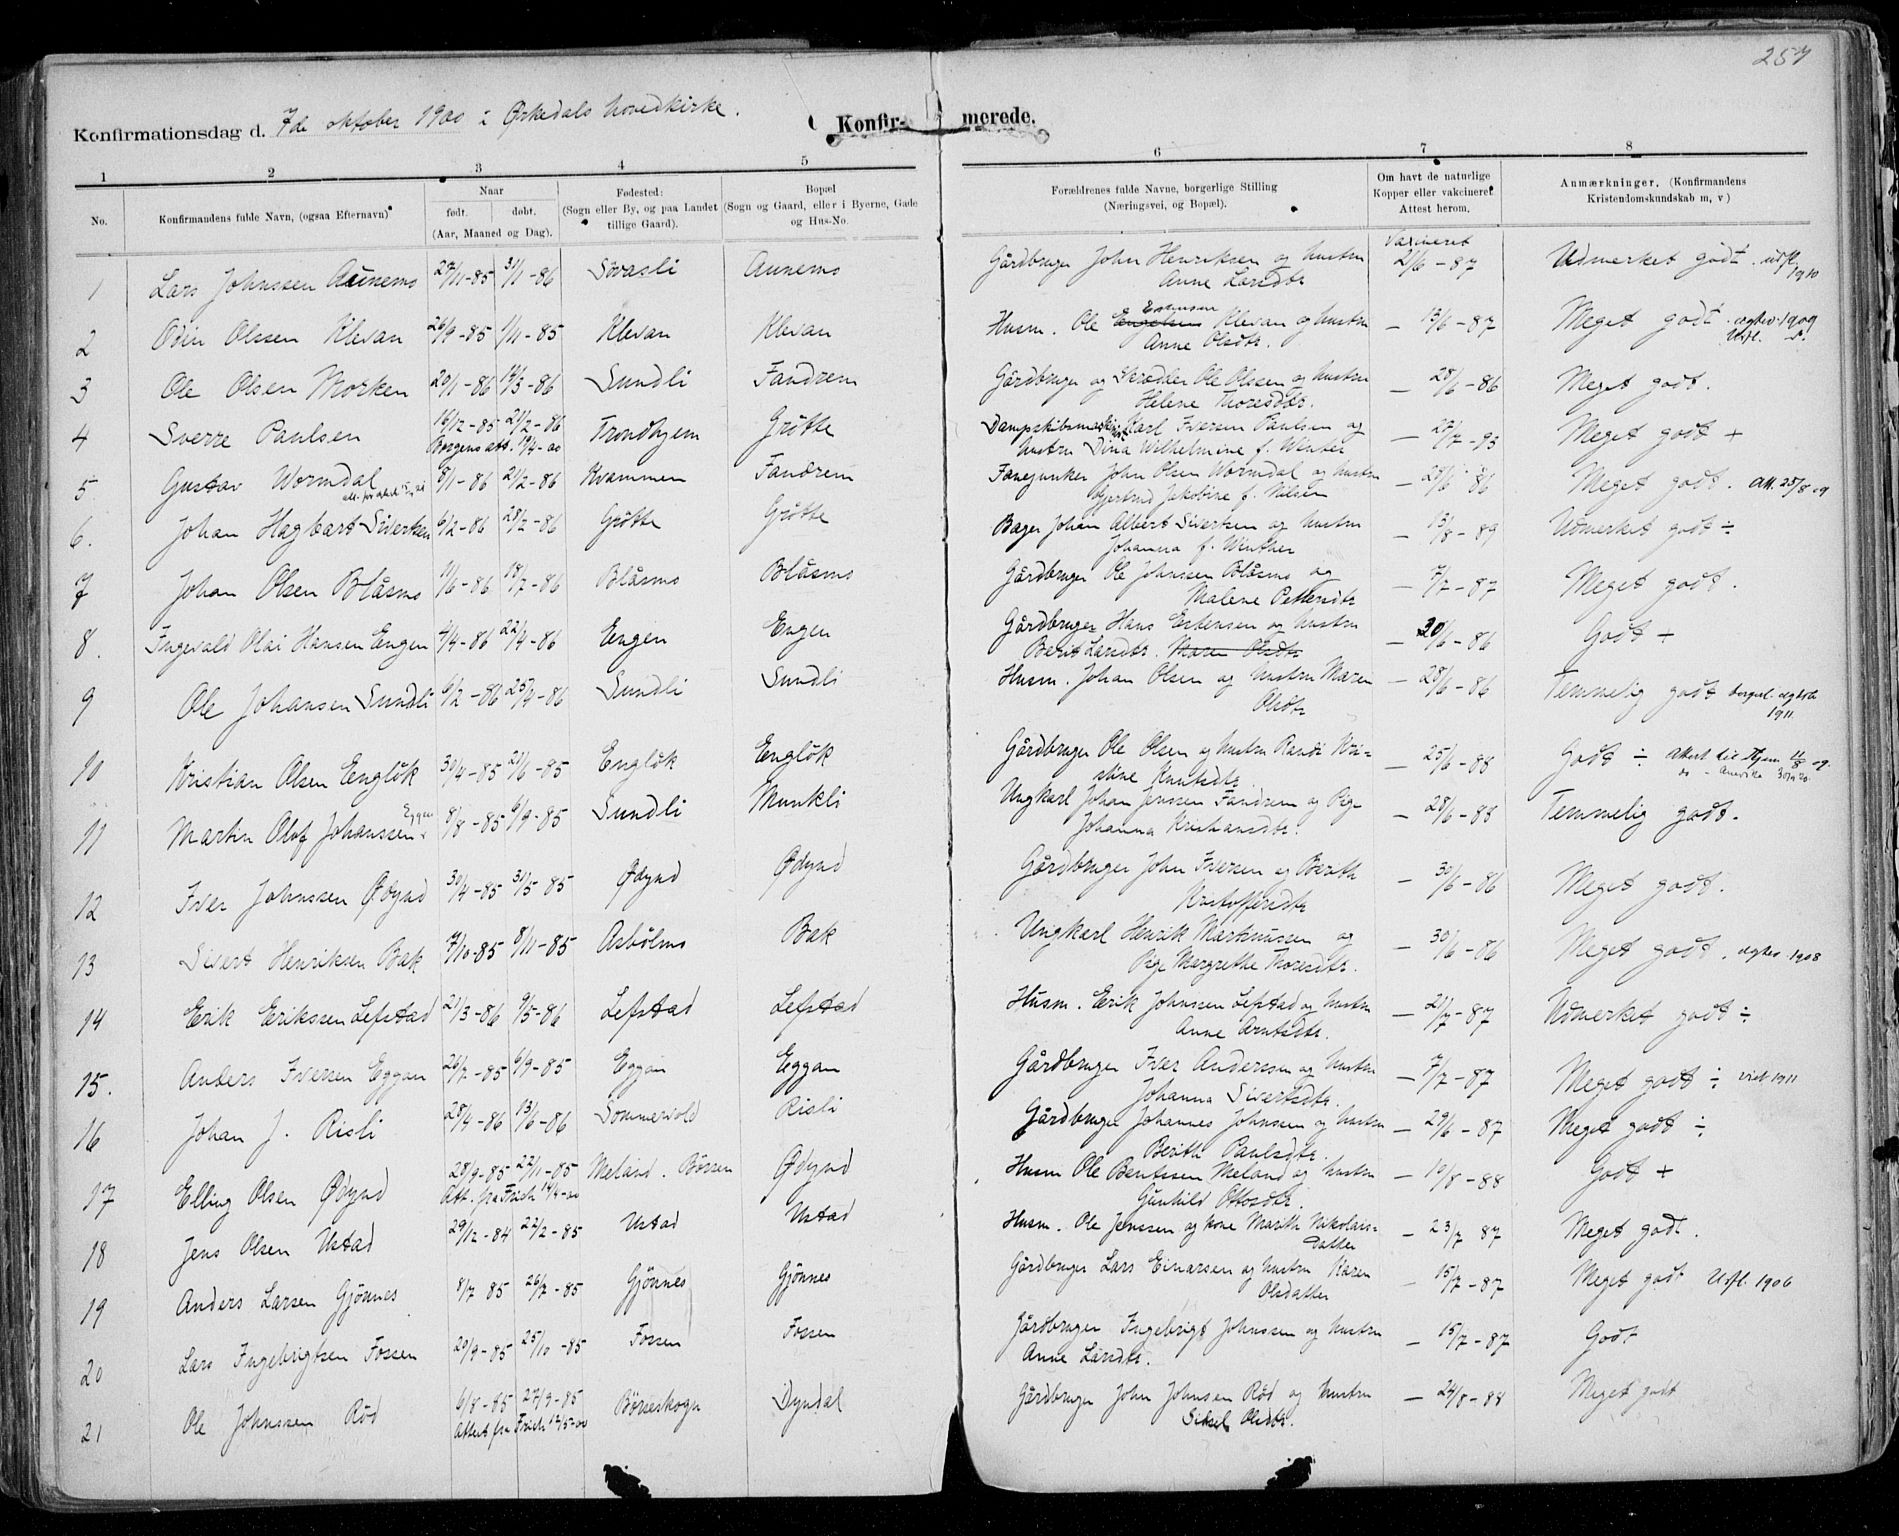 257
Konfirmationsdag d. 7de oktober 1900 i Ørkedals hovedkirke.
Konfir- merede.
1 2 3 4 5 6 7 8
No. Konfirmandens fulde Navn, (ogsaa Efternavn) Naar født. døbt. (Aar, Maaned og Dag). Fødested: (Sogn eller By, og paa Landet tillige Gaard). Bopæl (Sogn og Gaard, eller i Byerne, Gade og Hus-No. Forældrenes fulde Navne, borgerlige Stilling (Næringsvei, og Bopæl). Om havt de naturlige Kopper eller vakcineret. Attest herom. Anmærkninger. (Konfirmandens Kristendomskundskab m, v)
1 Lars Johnssen Aunemo 27/11-85 31/1-86 Sovasli Aunemo Gårdbruger John Henriksen og hustru Anne Larsdtr Vaxineret 21/6-87 Udmerket godt. udfl. 1910
2 Odin Olssen Klevan 26/9-85 1/11-85 Klevan Klevan Husm. Ole Engelsen Estensen Klevan og hustru Anne Olsdtr. — 13/6-87 Meget godt. 1909 Udfl.
3 Ole Olsen Morken 20/1-86 14/3-86 Sundli Fandrem Gårdbruger og Skrædder Ole Olssen og hustru Helene Thoresdtr. — 28/6-86 Meget godt.
4 Sverre Paulsen 16/12-85 21/2-86 Borgens att. 19/4-00 Trondhjem Grøtte Dampskibsmaskinist Karl Iversen Paulsen og hustru Dina Wilhelmine f. Winter — 27/7-93 Meget godt +
5 Gustav Wormdal 8/1-86 21/2-86 Kvammen Fandrem Fanejunker John Olsen Wormdal og hustru Gjertrud Jakobine f. Nilsen — 28/6-86 Meget godt. Att. 25/8-09
6. Johan Hagbart Sivertsen 6/2-86 28/2-86 Grøtte Grøtte Bager Johan Albert Sivertsen og hustru Johanna f. Winther — 13/8-89 Udmerket godt ÷
7 Johan Olsen Blåsmo 11/6-86 18/7-86 Blåsmo Blåsmo Gårdbruger Ole Johnssen Blåsmo og Malene Pettersdtr — 7/7-87 Meget godt.
8. Ingevald Olai Hansen Engen 4/4-86 22/4-86 Engen Engen Gårdbruger Hans Estensen og hustru Berit Larsdtr. Maren Olsdtr — 30/6-86 Godt +
9 Ole Johansen Sundli 6/2-86 25/4-86 Sundli Sundli Husm. Johan Olsen og hustru Maren Olsdtr — 28/6-86 Temmelig godt borgerl. 1911
10 Kristian Olsen Engløk 30/4-85 21/6-85 Engløk Engløk Gårdbruger Ole Olsen og hustru Randi Kristine Knutsdtr. — 25/6-88 Godt ÷ Attest til Hjem 11/8-09. do - Amerika
11 Martin Olof Johanssen Eggen 8/8-85 6/9-85 Sundli Munkli Ungkarl Johan Jenssen Fandrem og Pige Johanna Kristiansdtr. — 28/6-88 Temmelig godt.
12 Iver Johnssen Ødynd 30/4-85 31/5-85 Ødynd Ødynd Gårdbruger John Iversen og Berith Kristoffersdtr — 30/6-86 Meget godt.
13 Sivert Henriksen Bak 9/10-85 8/11-85 Asbølmo Bak Ungkarl Henrik Markussen og Pige Margrethe Thoresdtr. — 30/6-86 Meget godt. 1908
14 Erik Erikssen Lefstad 21/3-86 9/5-86 Lefstad Lefstad Husm. Erik Johnssen Lefstad og hustru Anne Arntsdtr. — 21/7-87 Udmerket godt ÷
15. Anders Iversen Eggan 26/7-85 6/9-85 Eggan Eggan Gårdbruger Iver Anderssen og hustru Johanna Sivertsdtr. — 7/7-87 Meget godt ÷ viet 1911
16 Johan J. Risli 28/4-86 13/6-86 Sommervold Risli Gårdbruger Johannes Johnssen og hustru Berith Paulsdtr. — 29/6-87 Meget godt ÷
17 Elling Olsen Ødynd 28/9-85 22/11-85 Att. fra Frich 14/4-00 Meland. Børsen Ødynd Husm Ole Berntssen Meland og hustru Gunhild Ottosdtr. — 10/8-88 Godt +
18 Jens Olsen Ustad 29/12-84 22/2-85 Ustad Ustad Husm. Ole Jenssen og kone Marith Nikolaisdatter — 23/7 87 Meget godt.
19 Anders Larsen Gjønnes 8/7 85 26/7-85 Gjønnes Gjønnes Gårdbruger Lars Einarsen og hustru Karen Olsdatter — 15/7-87 Meget godt Udfl. 1906
20 Lars Ingebrigtsen Fossen 20/9-85 25/10-85 Fossen Fossen Gårdbruger Ingebrigt Johnssen og hustru Anne Larsdtr. — 15/7-87 Godt
21 Ole Johnssen Rød 6/8-85 27/9-85 Attest fra Frich 12/5-00 Børseskogn Dyndal Gårdbruger John Johnsen Rød og hustru Sidsel Olsdtr. — 24/8-88 Meget godt